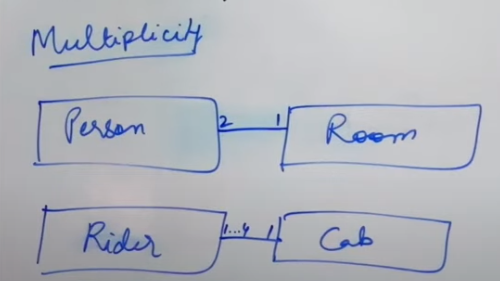 Multiplicity
Person 2 1 Room
Rider 1...4 1 Cab